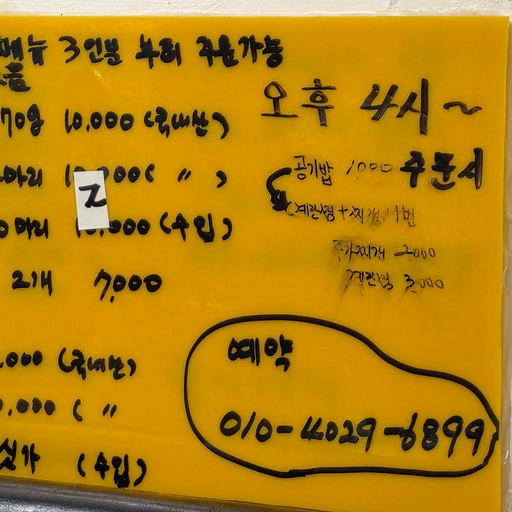 메뉴 3인분 부터 주문가능
오후 4시~
10,000 (국내산)
공기밥 1000 주문시
마리 ( 〃 )
(계란찜+찌개) 1번
마리 000 (수입)
찌개 2000
2개 7,000
계란찜 3,000
예약
,000 (국내산)
010-4029-6899
,000 ( 〃
싯가 (수입)